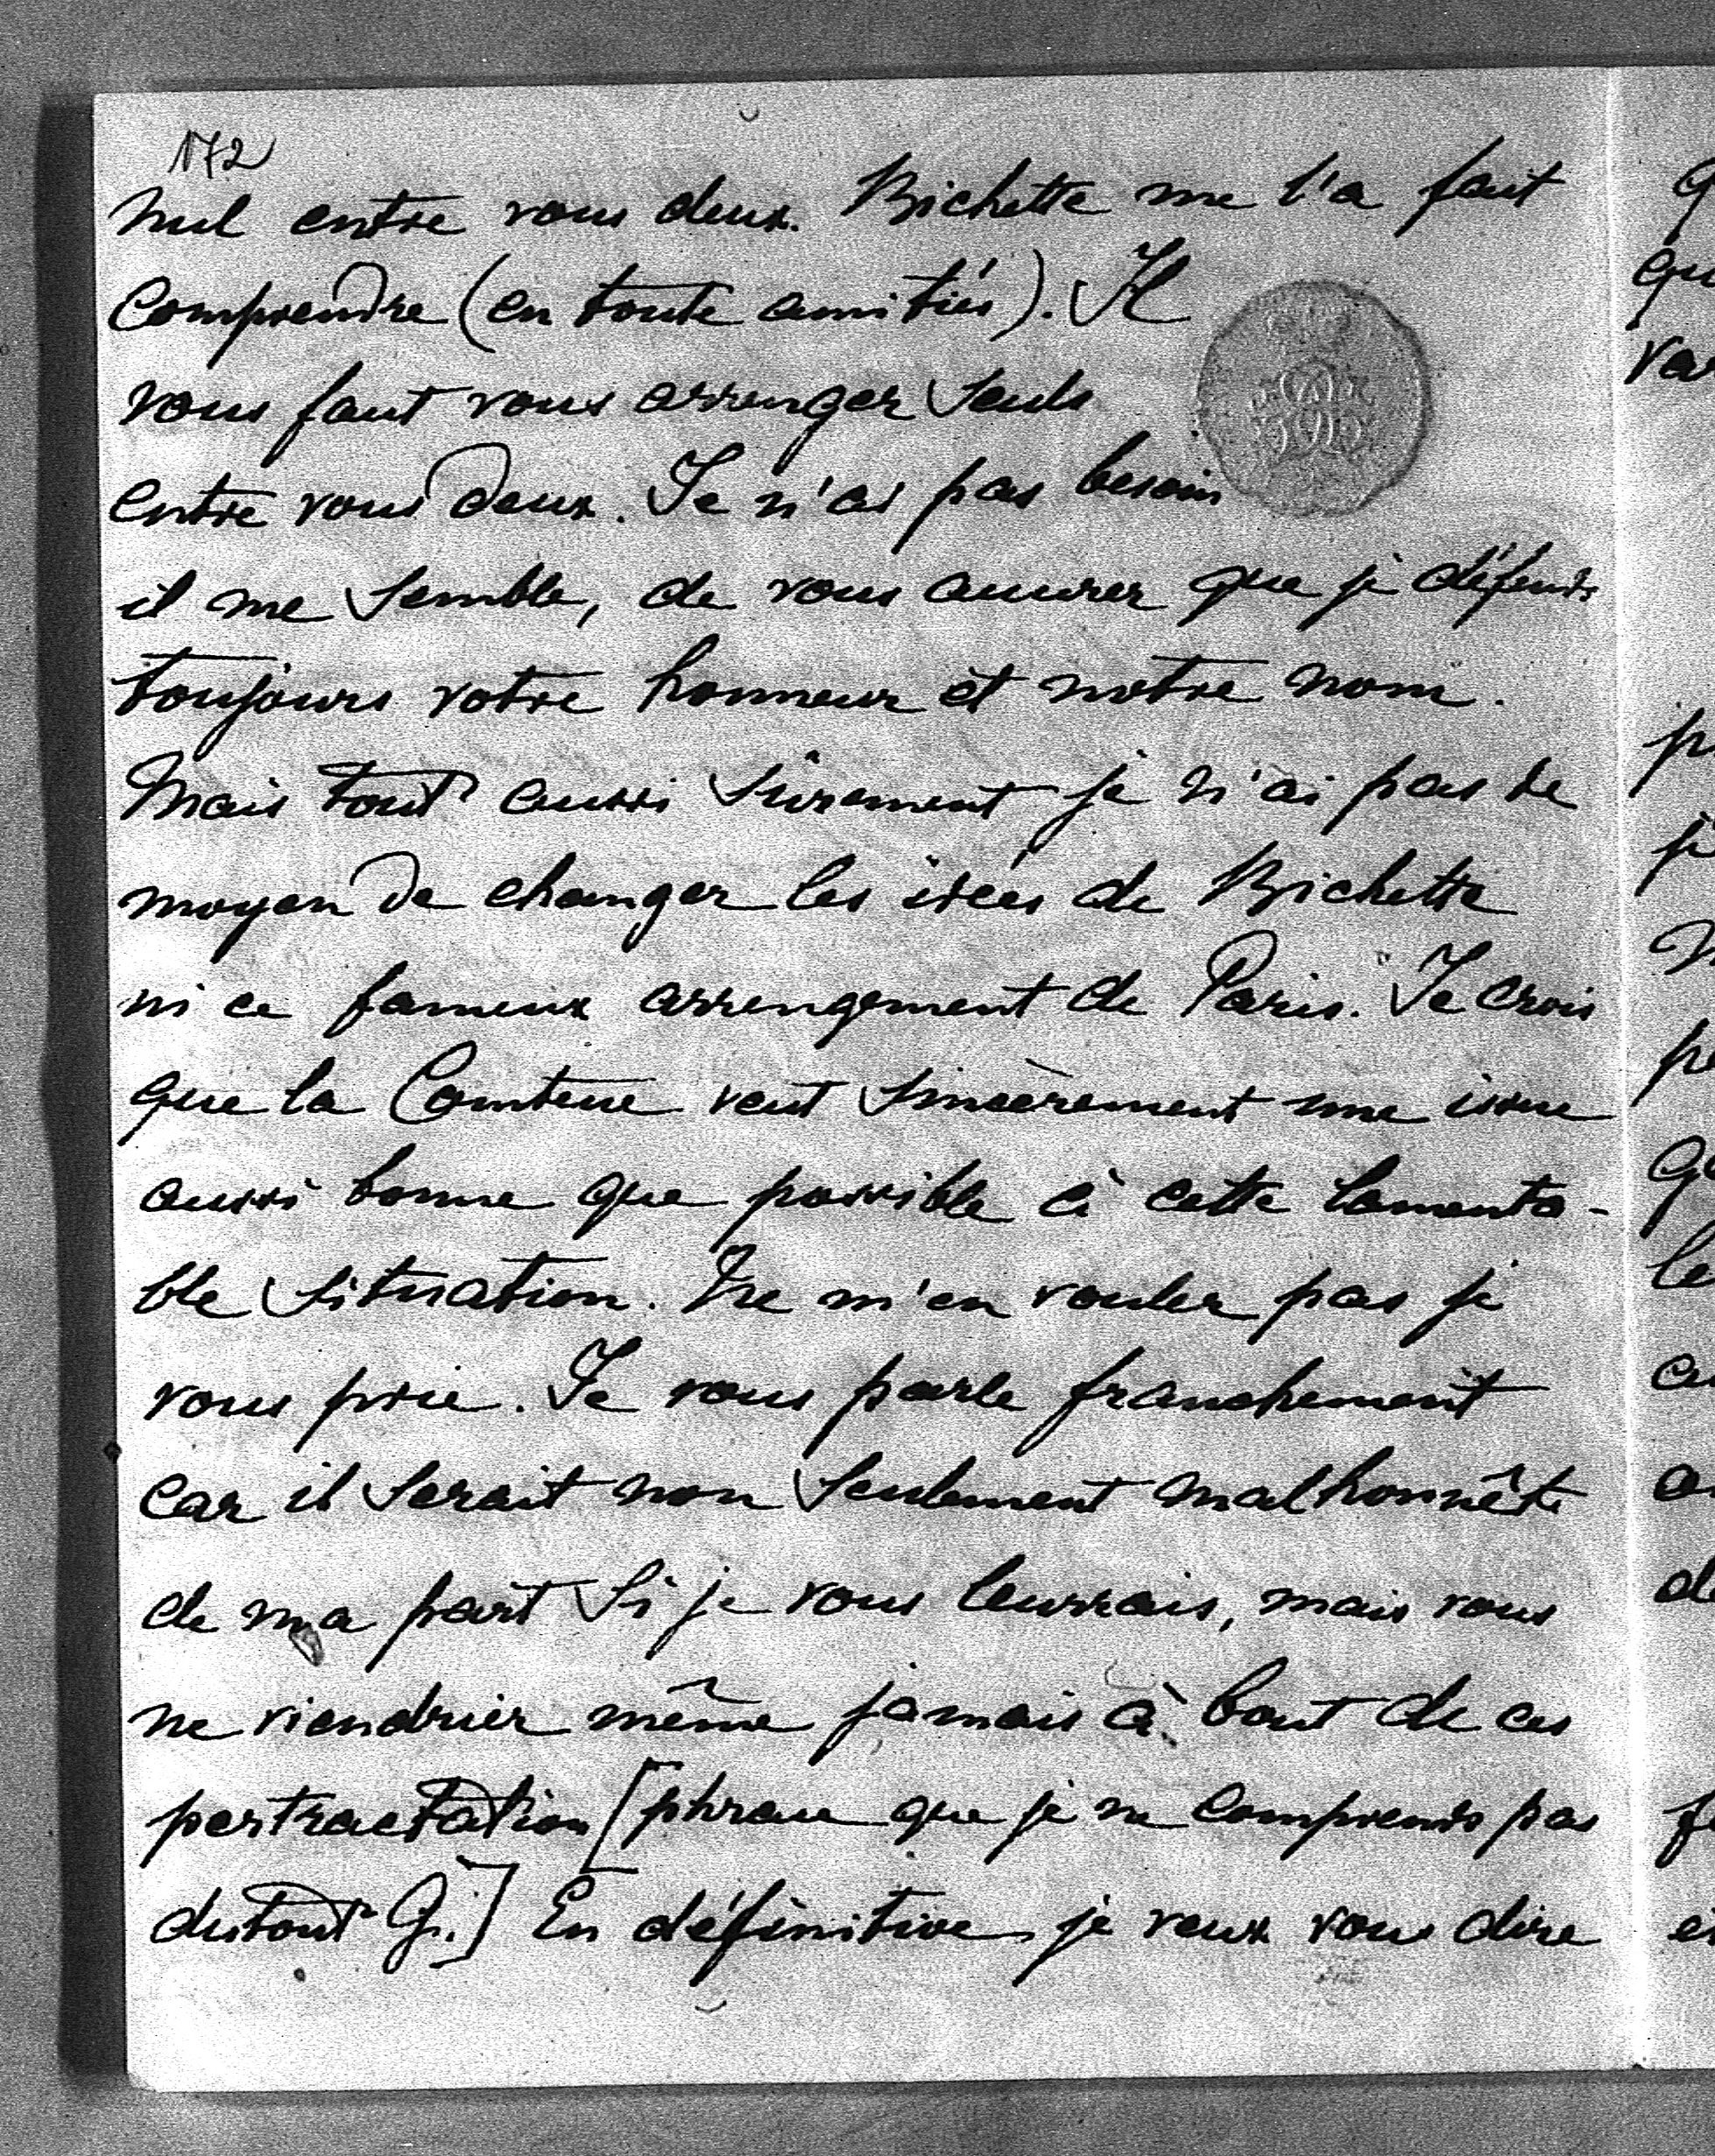 172
nul entre vous deux. Bichette me l'a fait
comprendre (en toute amitiés). Il
vous faut vous arrenger seuls
entre vous deux. Je n'ai pas besoin
il me semble, de vous assurer que je défends
toujours votre honneur et notre nom.
Mais tout aussi sûrement je n'ai pas de
moyen de changer les idées de Bichette
ni ce fameux arrengement de Paris. Je crois
que la Comtesse veut sincèrement une issue
aussi bonne que possible à cette lamenta-
ble situation. Ne m'en voulez pas je
vous prie. Je vous parle franchement
car il serait non seulement malhonnête
de ma part si je vous leurrais, mais vous
ne viendriez même jamais à bout de ces
pertractation [phrase que je ne comprends pas
dutout G.] En définitive, je veux vous dire